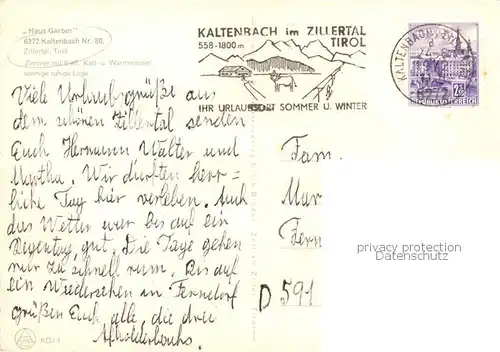 „Haus Garber"
6272 Kaltenbach Nr. 80,
Zillertal, Tirol
Zimmer mit Kalt- u. Warmwasser
sonnige ruhige Lage
KALTENBACH im ZILLERTAL
558-1800 m TIROL
IHR URLAUBSORT SOMMER U. WINTER
KALTENBACH
6272
REPUBLIK ÖSTERREICH
Viele Urlaubsgrüße aus
dem schönen Zillertal senden
Euch Hermann Walter und
Martha. Wir durften herr=
liche Tag hier verleben. Auch
das Wetter war bis auf ein
Regentag gut. Die Tage gehen
nur zu schnell rum. Bis auf
ein Wiedersehen in Ferndorf
grüßen Euch alle, die drei
Fam.
Mar
Fern
D 591
privacy protection
Datenschutz
KO/1